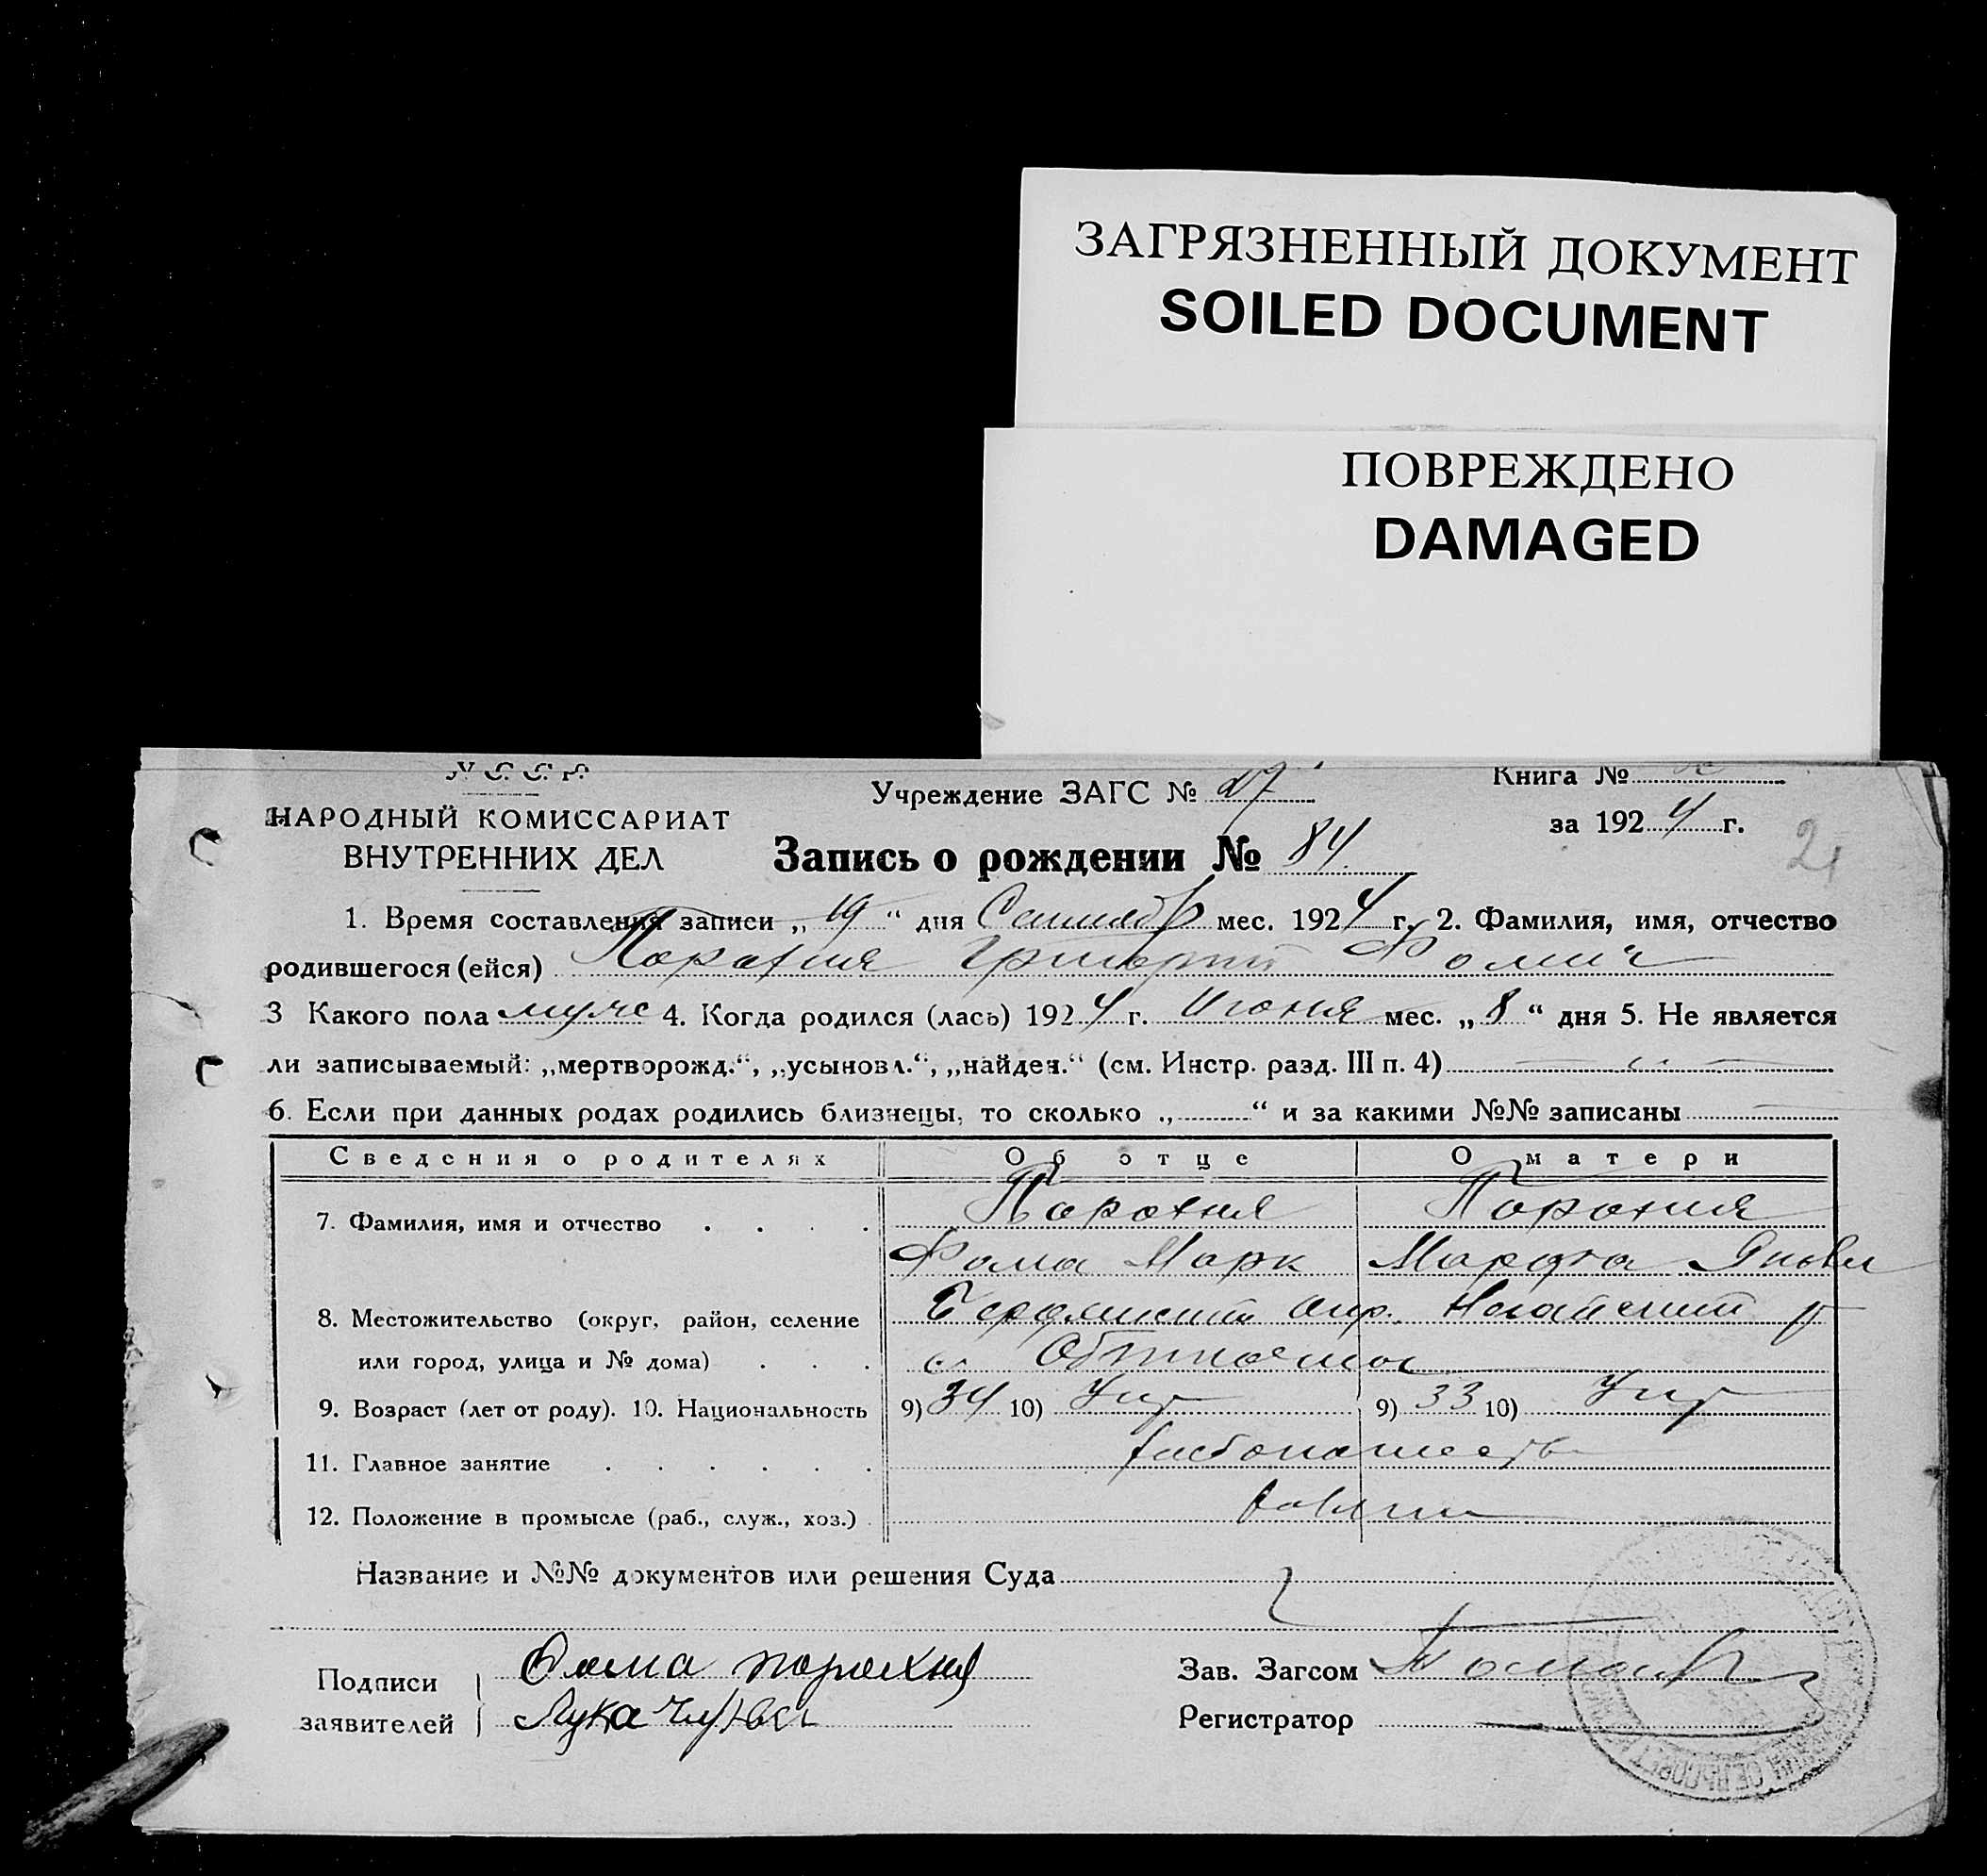 ЗАГРЯЗНЕННЫЙ ДОКУМЕНТ
SOILED DOCUMENT
ПОВРЕЖДЕНО
DAMAGED
У. С. С. Р.
НАРОДНЫЙ КОМИССАРИАТ
ВНУТРЕННИХ ДЕЛ
Учреждение ЗАГС № 27
Книга №
за 1924 г.
2
Запись о рождении № 84
1. Время составления записи „19“ дня Сентябр мес. 1924 г. 2. Фамилия, имя, отчество
родившегося (ейся) Порохня Григорий Фомич
3 Какого пола муж 4. Когда родился (лась) 1924 г. Июня мес. „8“ дня 5. Не является
ли записываемый: „мертворожд.“, „усыновл.“, „найден.“ (см. Инстр. разд. III п. 4) — „ —
6. Если при данных родах родились близнецы, то сколько „ “ и за какими №№ записаны —
Сведения о родителях Об отце О матери
7. Фамилия, имя и отчество Порохня Порохня
Фома Марк Марфа Яковл
8. Местожительство (округ, район, селение Бердянский окр. Ногайский р
или город, улица и № дома) с. Обиточное
9. Возраст (лет от роду). 10. Национальность 9) 34 10) Укр 9) 33 10) Укр
11. Главное занятие
12. Положение в промысле (раб., служ., хоз.)
Название и №№ документов или решения Суда
Подписи заявителей
Фома порохня
Лука
Зав. Загсом
Регистратор